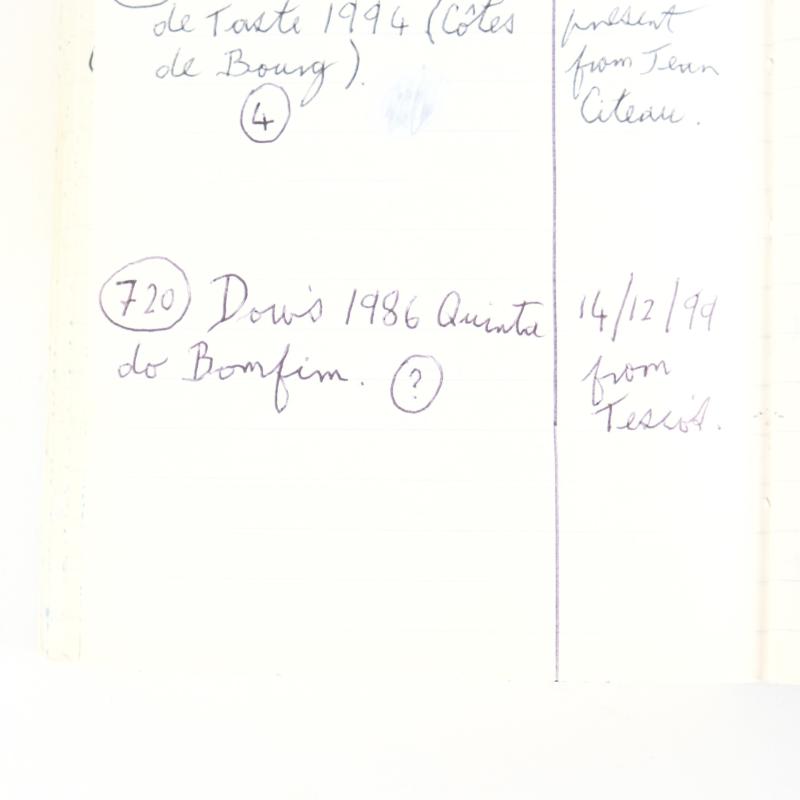 de Taste 1994 (Côtes
de Bourg).
4
present
from Jean
Citeau.
720 Dow's 1986 Quinta
do Bomfim. ?
14/12/99
from
Tesco's.